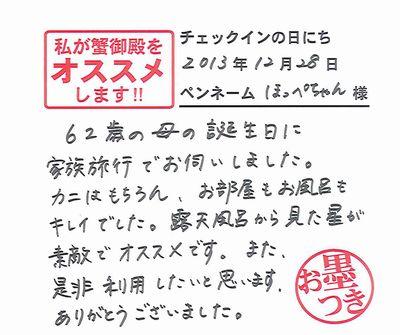 私が蟹御殿を
オススメ
します!!
チェックインの日にち
2013年12月28日
ペンネーム ほっぺちゃん 様
62歳の母の誕生日に
家族旅行でお伺いしました。
カニはもちろん、お部屋もお風呂も
キレイでした。露天風呂から見た星が
素敵でオススメです。また、
是非利用したいと思います。
ありがとうございました。
お墨つき